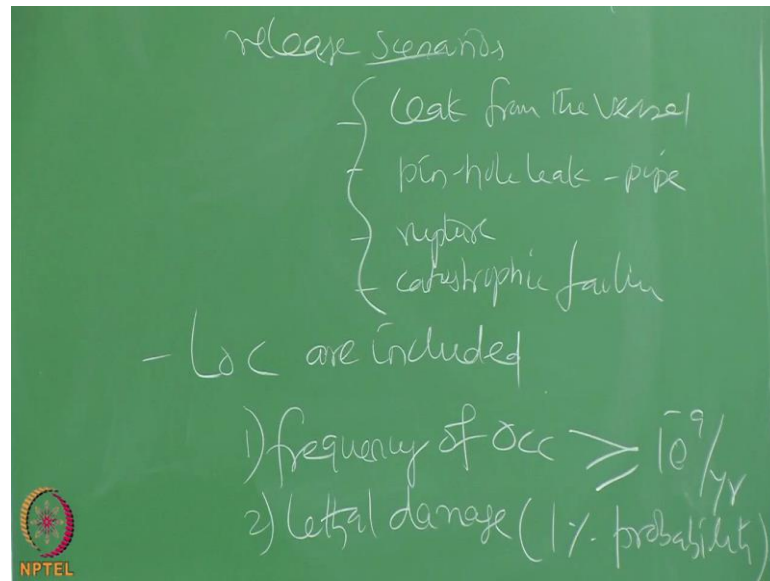 release scenarios
- leak from the vessel
- pin-hole leak - pipe
- rupture
- catastrophic failure
- LOC are included
1) frequency of occ ≥ 10⁻⁹/yr
2) lethal damage (1% probability)
NPTEL